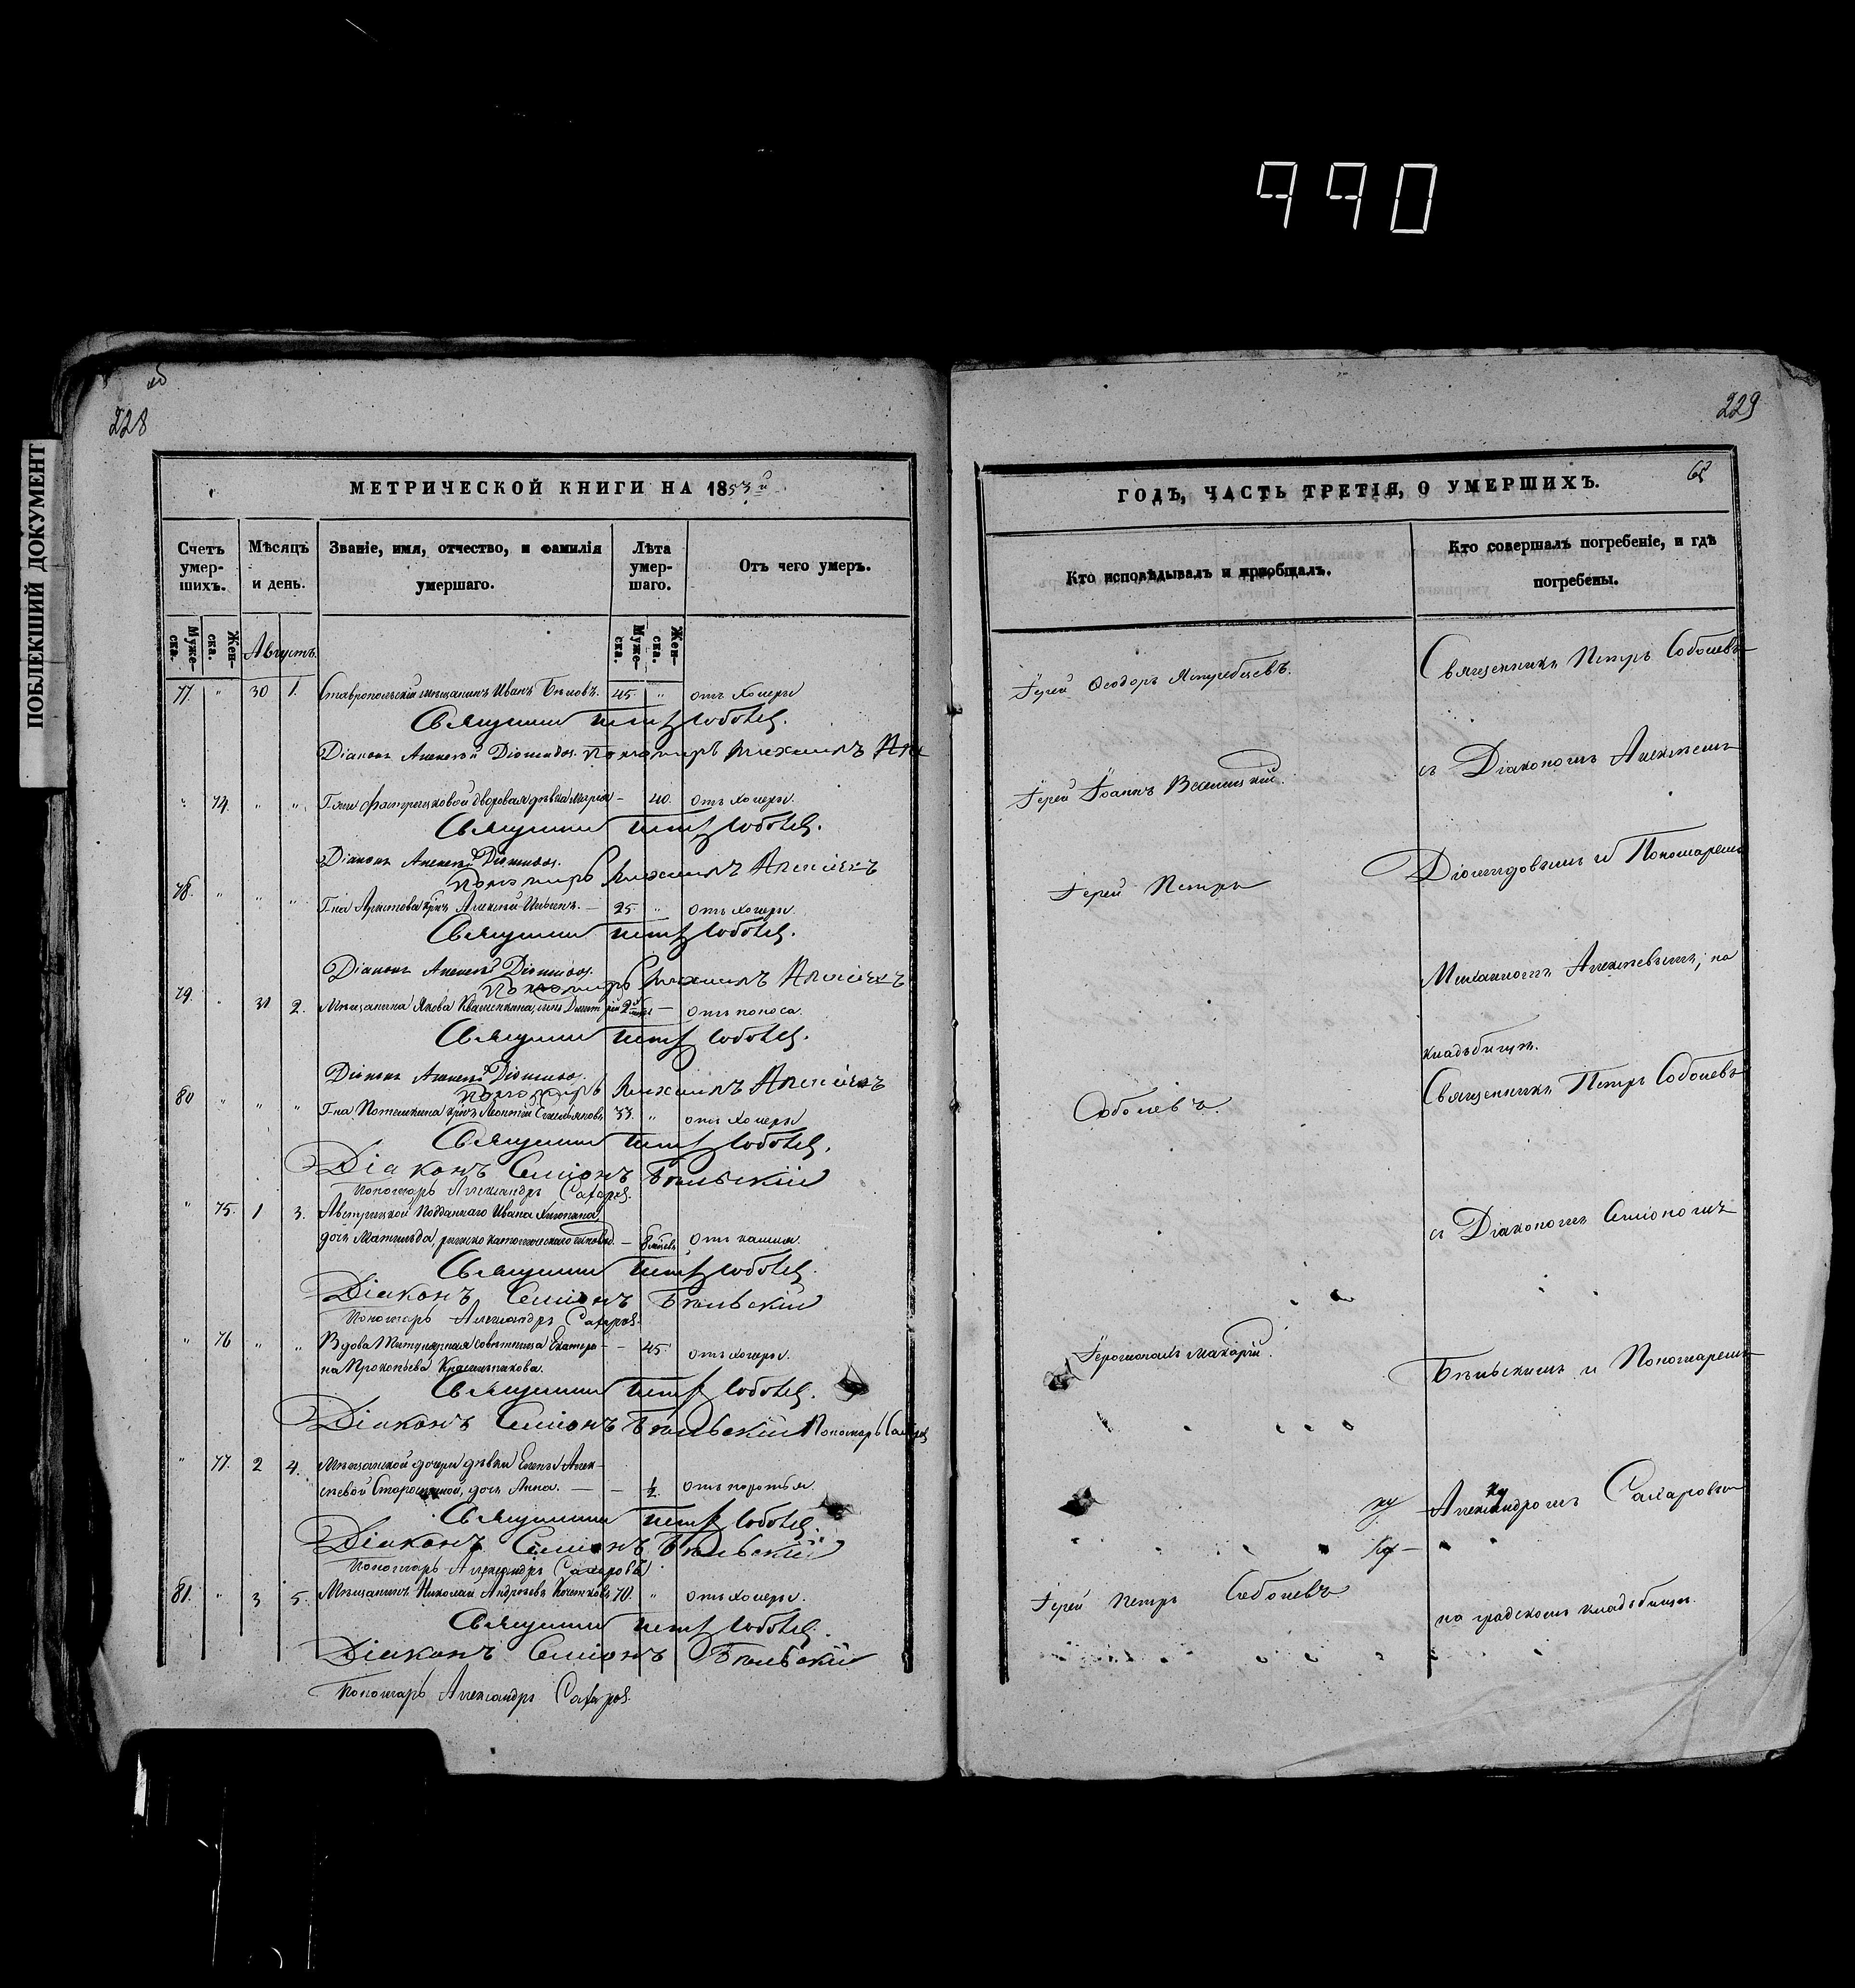 990
ПОБЛЕКШИЙ ДОКУМЕНТ
228
МЕТРИЧЕСКОЙ КНИГИ НА 1853й
Счетъ умер-шихъ.
Мѣсяцъ и день.
Званіе, имя, отчество, и фамилія умершаго.
Лѣта умер-шаго.
Отъ чего умеръ.
Муже-ска. Жен-ска. Августъ. Муже-ска. Жен-ска.
77. " 30 1. Ставропольскій мѣщанинъ Иванъ Бѣловъ. 45. " отъ холеры
Священникъ Петръ Соболев.
Діаконъ Алексѣй Діомидов. Пономарь Михаилъ
" 74. " " дворовая дѣвка Марія – 40. Отъ холеры.
Священникъ Петръ Соболев.
Діаконъ Алексѣй Діомидов.
Пономарь Михаилъ Алексѣевъ
78. " " " Г-на крест. Алексѣй – 25. " отъ холеры.
Священникъ Петръ Соболев.
Діаконъ Алексѣй Діомидов.
Пономарь Михаилъ Алексѣевъ
79. " 31 2. Мѣщанина Якова сынъ Димитрій 2 – отъ поноса.
Священникъ Петръ Соболев.
Діаконъ Алексѣй Діомидов.
Пономарь Михаилъ Алексѣевъ
80 " " " Г-на Потемкина Леонтій 33. " отъ холеры
Священникъ Петръ Соболев.
Діаконъ Симіонъ Бѣльскій
Пономарь Александръ Сахаров.
" 75. 1 3. Австрійской подданнаго Ивана
дочь Матильда, римско католическаго – 8 отъ кашля.
Священникъ Петръ Соболев.
Діаконъ Симіонъ Бѣльскій
Пономарь Александръ Сахаров.
" 76 " " Вдова Титулярная Совѣтница Екатери-
на Прокопьева Красильникова. – 45. отъ холеры.
Священникъ Петръ Соболев.
Діаконъ Симіонъ Бѣльскій Пономарь
" 77. 2 4. Мѣщанской дочери дѣвки Елены Алек-
сѣевой дочь Анна. – – 1/2.
Священникъ Петръ Соболев.
Діаконъ Симіонъ Бѣльскій
Пономарь Александръ Сахаровъ
81. " 3 5. Мѣщанинъ Николай Андреевъ 70. " отъ холеры.
Священникъ Петръ Соболев.
Діаконъ Симіонъ Бѣльскій
Пономарь Александръ Сахаров.
229
ГОДЪ, ЧАСТЬ ТРЕТІЯ, О УМЕРШИХЪ.
Кто исповѣдывалъ и пріобщалъ.
Кто совершалъ погребеніе, и гдѣ погребены.
Іерей Ѳеодоръ Ястребцевъ.
Священникъ Петръ Соболевъ
Іерей Іоаннъ
съ Діакономъ Алексѣемъ
Іерей Петръ
Діомидовымъ и Пономаремъ
Михаиломъ Алексѣевымъ, на
кладбищѣ.
Соболевъ.
Священникъ Петръ Соболевъ
съ Діакономъ Симіономъ
Іеромонахъ Макарій.
Бѣльскимъ и Пономаремъ
Александромъ Сахаровым
Іерей Петръ Соболевъ.
на градскомъ кладбищѣ.